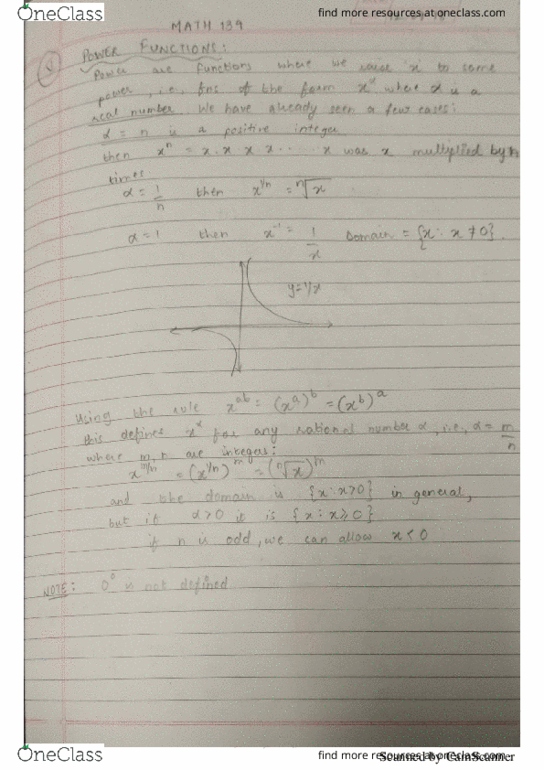 OneClass
find more resources at oneclass.com
MATH 139
POWER FUNCTIONS:
Power are functions where we raise x to some
power, i.e., fns of the form x^α where α is a
real number. We have already seen a few cases:
α = n is a positive integer
then x^n = x. x x x... x was x multiplied by n
times.
α = 1/n then x^(1/n) = ⁿ√x
α = 1 then x^-1 = 1/x Domain = {x : x ≠ 0}.
y = 1/x
Using the rule x^ab = (x^a)^b = (x^b)^a
this defines x^α for any rational number α, i.e., α = m/n
where m, n are integers:
x^(m/n) = (x^(1/n))^m = (ⁿ√x)^m
and the domain is {x : x>0} in general,
but if α>0 it is {x : x ≥ 0}
if n is odd, we can allow x<0
NOTE: 0^0 is not defined
OneClass
find more resources at oneclass.com
Scanned by CamScanner